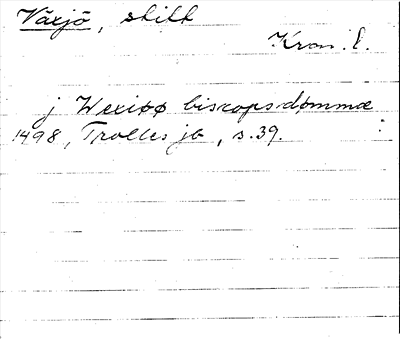 Växjö, stift
Kron. l.
j Wexiøø biscops dømmæ
1498, Trolles jb, s. 39.